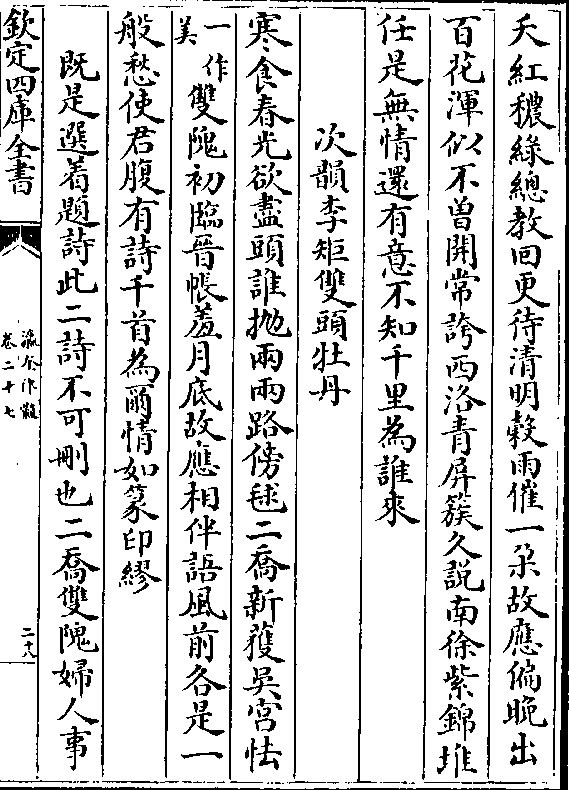 夭紅穠緑總教回更待清明穀雨催一朶故應偏晚出
百花渾似不曽開常誇西洛青屏簇久説南徐紫錦堆
任是無情還有意不知千里為誰來
次韻李矩雙頭牡丹
寒食春光欲盡頭誰抛兩兩路傍毬二喬新獲吳宫怯
一作美雙隗初臨晉帳羞月底故應相伴語風前各是一
般愁使君腹有詩千首為爾情如篆印繆
既是選着題詩此二詩不可刪也二喬雙隗婦人事
欽定四庫全書
瀛奎律髓
卷二十七
二八